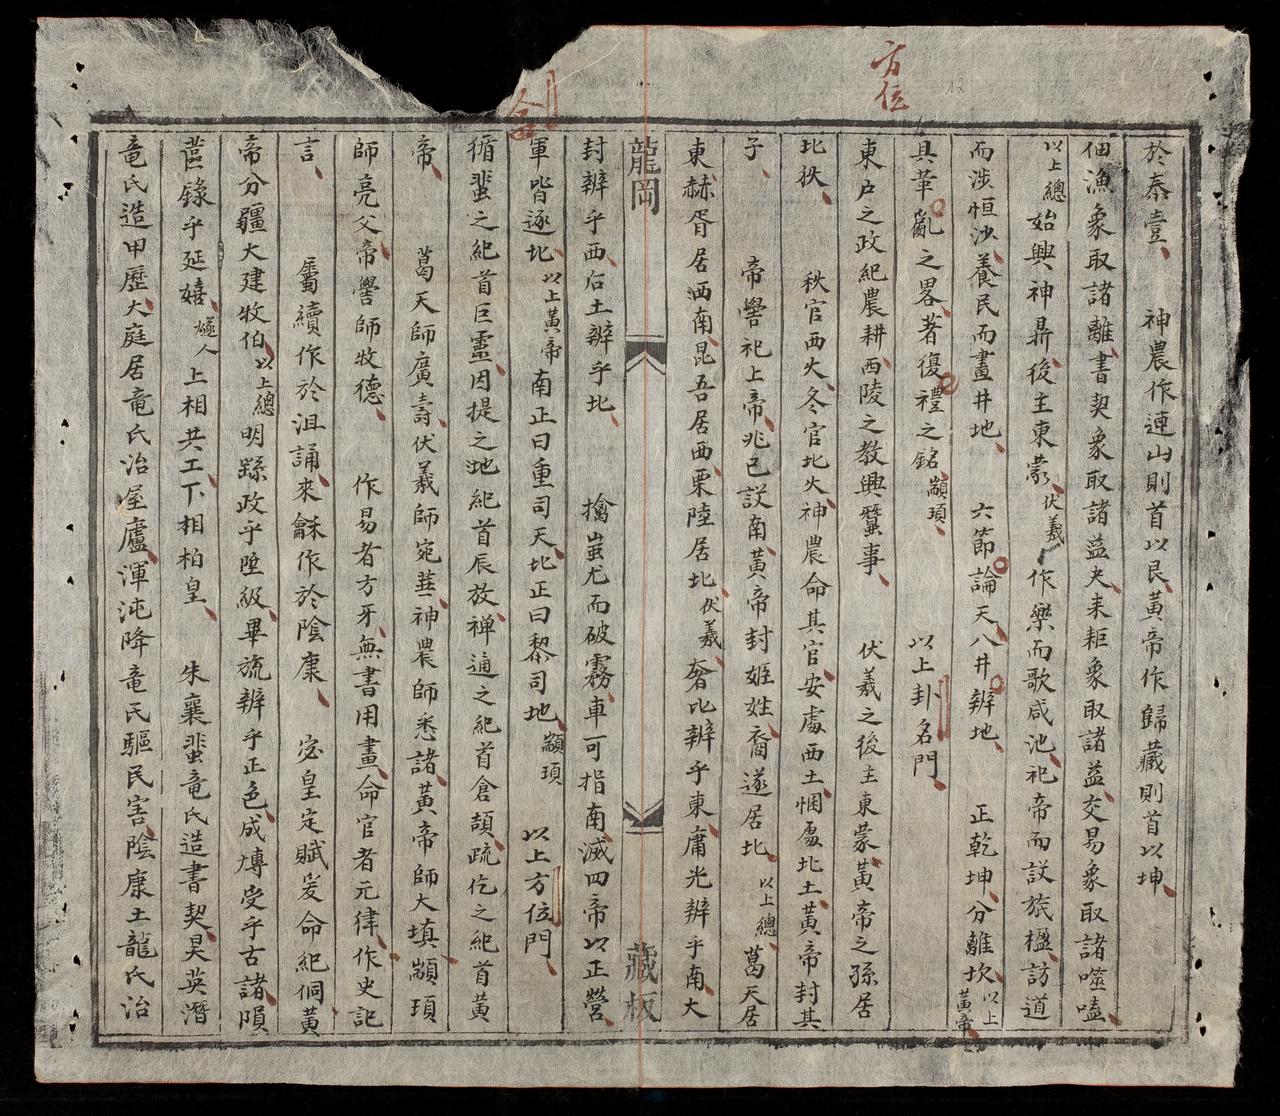 方位
於泰壹　神農作連山則首以艮黃帝作歸藏則首以坤
佃漁象取諸離書契象取諸益夬耒耟象取諸益交易象取諸噬嗑
以上總　始興神鼎後主東蒙伏羲　作樂而歌咸池祀帝而設旅楹訪道
而涉恒沙養民而畫井地　六節論天八井辨地　正乾坤分離坎以上黃帝
具革亂之畧著復禮之銘顓頊　以上卦名門
東戶之政紀農耕西陵之教興蠶事　伏羲之後主東蒙黃帝之孫居
北狄　秋官西火冬官北火神農命其官安處西土惘處北土黃帝封其
子　帝嚳祀上帝兆已設南黃帝封姬姓裔遂居北以上總　葛天居
東赫胥居洒南昆吾居西栗陸居北伏羲　奢比辨乎東庸光辨乎南大
龍岡　藏板
封辨乎西后土辨乎北　擒蚩尤而破霧車可指南滅四帝以正營
劍
軍皆逐北以上黃帝　南正曰重司天北正曰黎司地顓頊　以上方位門
循蜚之紀首巨靈因提之地紀首辰放禅通之紀首倉頡疏仡之紀首黃
帝　葛天師廣壽伏羲師宛華神農師悉諸黃帝師大填顓頊
師亮父帝嚳師牧德　作易者方牙無書用畫命官者元律作史記
言　屬續作於沮誦來龢作於陰康　宓皇定賦爰命紀侗黃
帝分疆大建牧伯以上總　明繇政乎陞級畢旒辨乎正色成博受乎古諸隕
蓝錄乎延嬉燧人　上相共工下相柏皇　朱襄蜚竜氏造書契昊英潛
竜氏造甲歷大庭居竜氏治屋廬渾沌降竜氏驅民害陰康土龍氏治